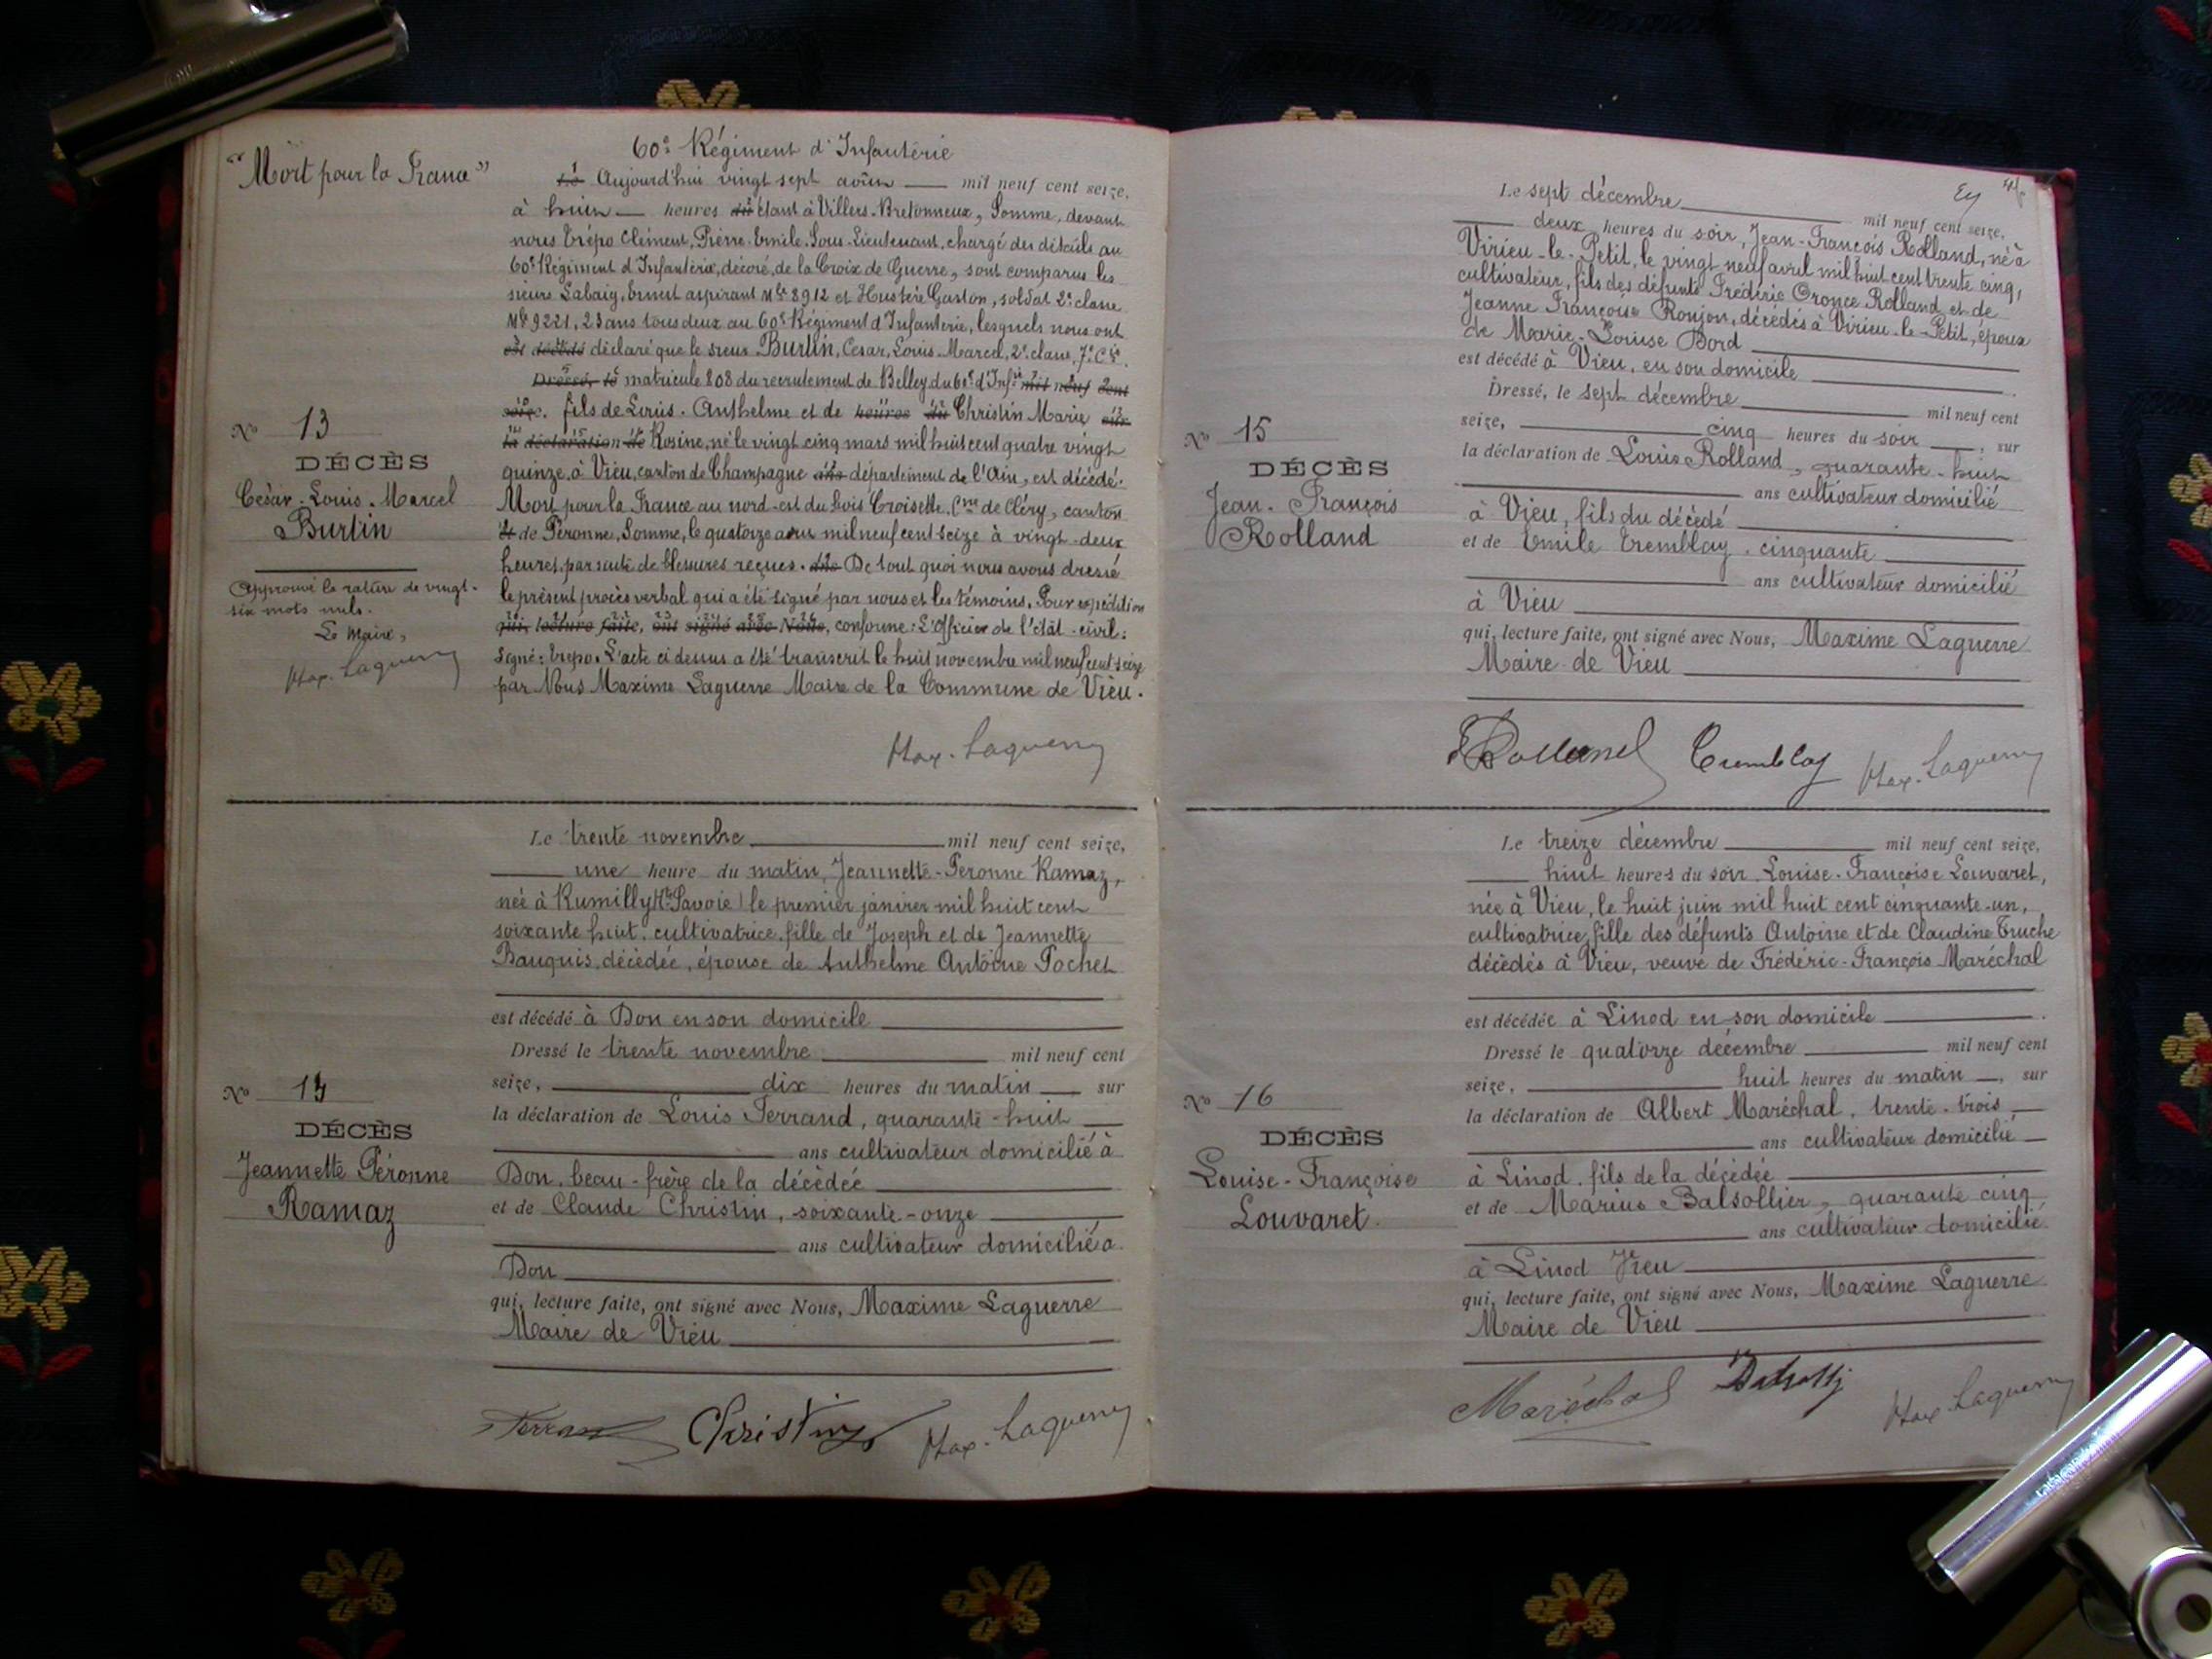 "Mort pour la France"
60e Régiment d'Infanterie
Le Aujourd'hui vingt sept août mil neuf cent seize,
à huit heures du étant à Villers-Bretonneux, Somme, devant
nous Trépo Clément, Pierre-Emile, Sous-Lieutenant, chargé des détails au
60e Régiment d'Infanterie, décoré de la Croix de Guerre, sont comparus les
sieurs Labaig, Ernest aspirant Mle 8912 et Hustère Gaston, soldat 2e classe
Mle 9221, 23 ans tous deux au 60e Régiment d'Infanterie, lesquels nous ont
est décédé déclaré que le sieur Burtin, César, Louis-Marcel, 2e classe, 7e Cie.
Dressé, le matricule 808 du recrutement de Belley du 60e d'Infie mil neuf cent
seize. fils de Louis-Anthelme et de heures du Christin Marie sur
la déclaration de Rosine, né le vingt cinq mars mil huit cent quatre vingt
quinze, à Vieu, canton de Champagne ans département de l'Ain, est décédé.
Mort pour la France au nord-est du bois Croisette, Cne de Cléry, canton
et de Péronne, Somme, le quatorze août mil neuf cent seize à vingt-deux
heures, par suite de blessures reçues. ans De tout quoi nous avons dressé
le présent procès verbal qui a été signé par nous et les témoins. Pour expédition
qui, lecture faite, ont signé avec Nous, conforme: L'Officier de l'état-civil:
Signé: Trepo. L'acte ci dessus a été transcrit le huit novembre mil neuf cent seize
par Nous Maxime Laguerre Maire de la Commune de Vieu.
No 13
DÉCÈS
César-Louis-Marcel
Burtin
Approuvé la rature de vingt-
six mots nuls.
Le Maire,
Max. Laguerre
Max. Laguerre
Le trente novembre mil neuf cent seize,
une heure du matin, Jeannette-Peronne Ramaz,
née à Rumilly (Hte Savoie) le premier janvier mil huit cent
soixante huit, cultivatrice, fille de Joseph et de Jeannette
Bauquis, décédée, épouse de Anthelme Antoine Pochet
est décédé à Don en son domicile
Dressé le trente novembre mil neuf cent
seize, dix heures du matin sur
la déclaration de Louis Ferrand, quarante-huit
ans cultivateur domicilié à
Don, beau-frère de la décédée
et de Claude Christin, soixante-onze
ans cultivateur domicilié à
Don
qui, lecture faite, ont signé avec Nous, Maxime Laguerre
Maire de Vieu
No 14
DÉCÈS
Jeannette Péronne
Ramaz
Ferrand Christin Max. Laguerre
Le sept décembre mil neuf cent seize,
deux heures du soir, Jean-François Rolland, né à
Virieu-le-Petit, le vingt neuf avril mil huit cent trente cinq,
cultivateur, fils des défunts Frédéric Oronce Rolland et de
Jeanne Françoise Ronjon, décédés à Virieu-le-Petit, époux
de Marie-Louise Bord
est décédé à Vieu, en son domicile
Dressé, le sept décembre mil neuf cent
seize, cinq heures du soir, sur
la déclaration de Louis Rolland, quarante-huit
ans cultivateur domicilié
à Vieu, fils du décédé
et de Emile Tremblay, cinquante
ans cultivateur domicilié
à Vieu
qui, lecture faite, ont signé avec Nous, Maxime Laguerre
Maire de Vieu
No 15
DÉCÈS
Jean-François
Rolland
Rolland Tremblay Max. Laguerre
Le treize décembre mil neuf cent seize,
huit heures du soir, Louise-Françoise Louvaret,
née à Vieu, le huit juin mil huit cent cinquante-un,
cultivatrice, fille des défunts Antoine et de Claudine Truche
décédés à Vieu, veuve de Frédéric-François Maréchal
est décédée à Linod en son domicile
Dressé le quatorze décembre mil neuf cent
seize, huit heures du matin, sur
la déclaration de Albert Maréchal, trente-trois
ans cultivateur domicilié
à Linod, fils de la décédée
et de Marius Balsollier, quarante cinq
ans cultivateur domicilié
à Linod Vieu
qui, lecture faite, ont signé avec Nous, Maxime Laguerre
Maire de Vieu
No 16
DÉCÈS
Louise-Françoise
Louvaret.
Maréchal Max. Laguerre